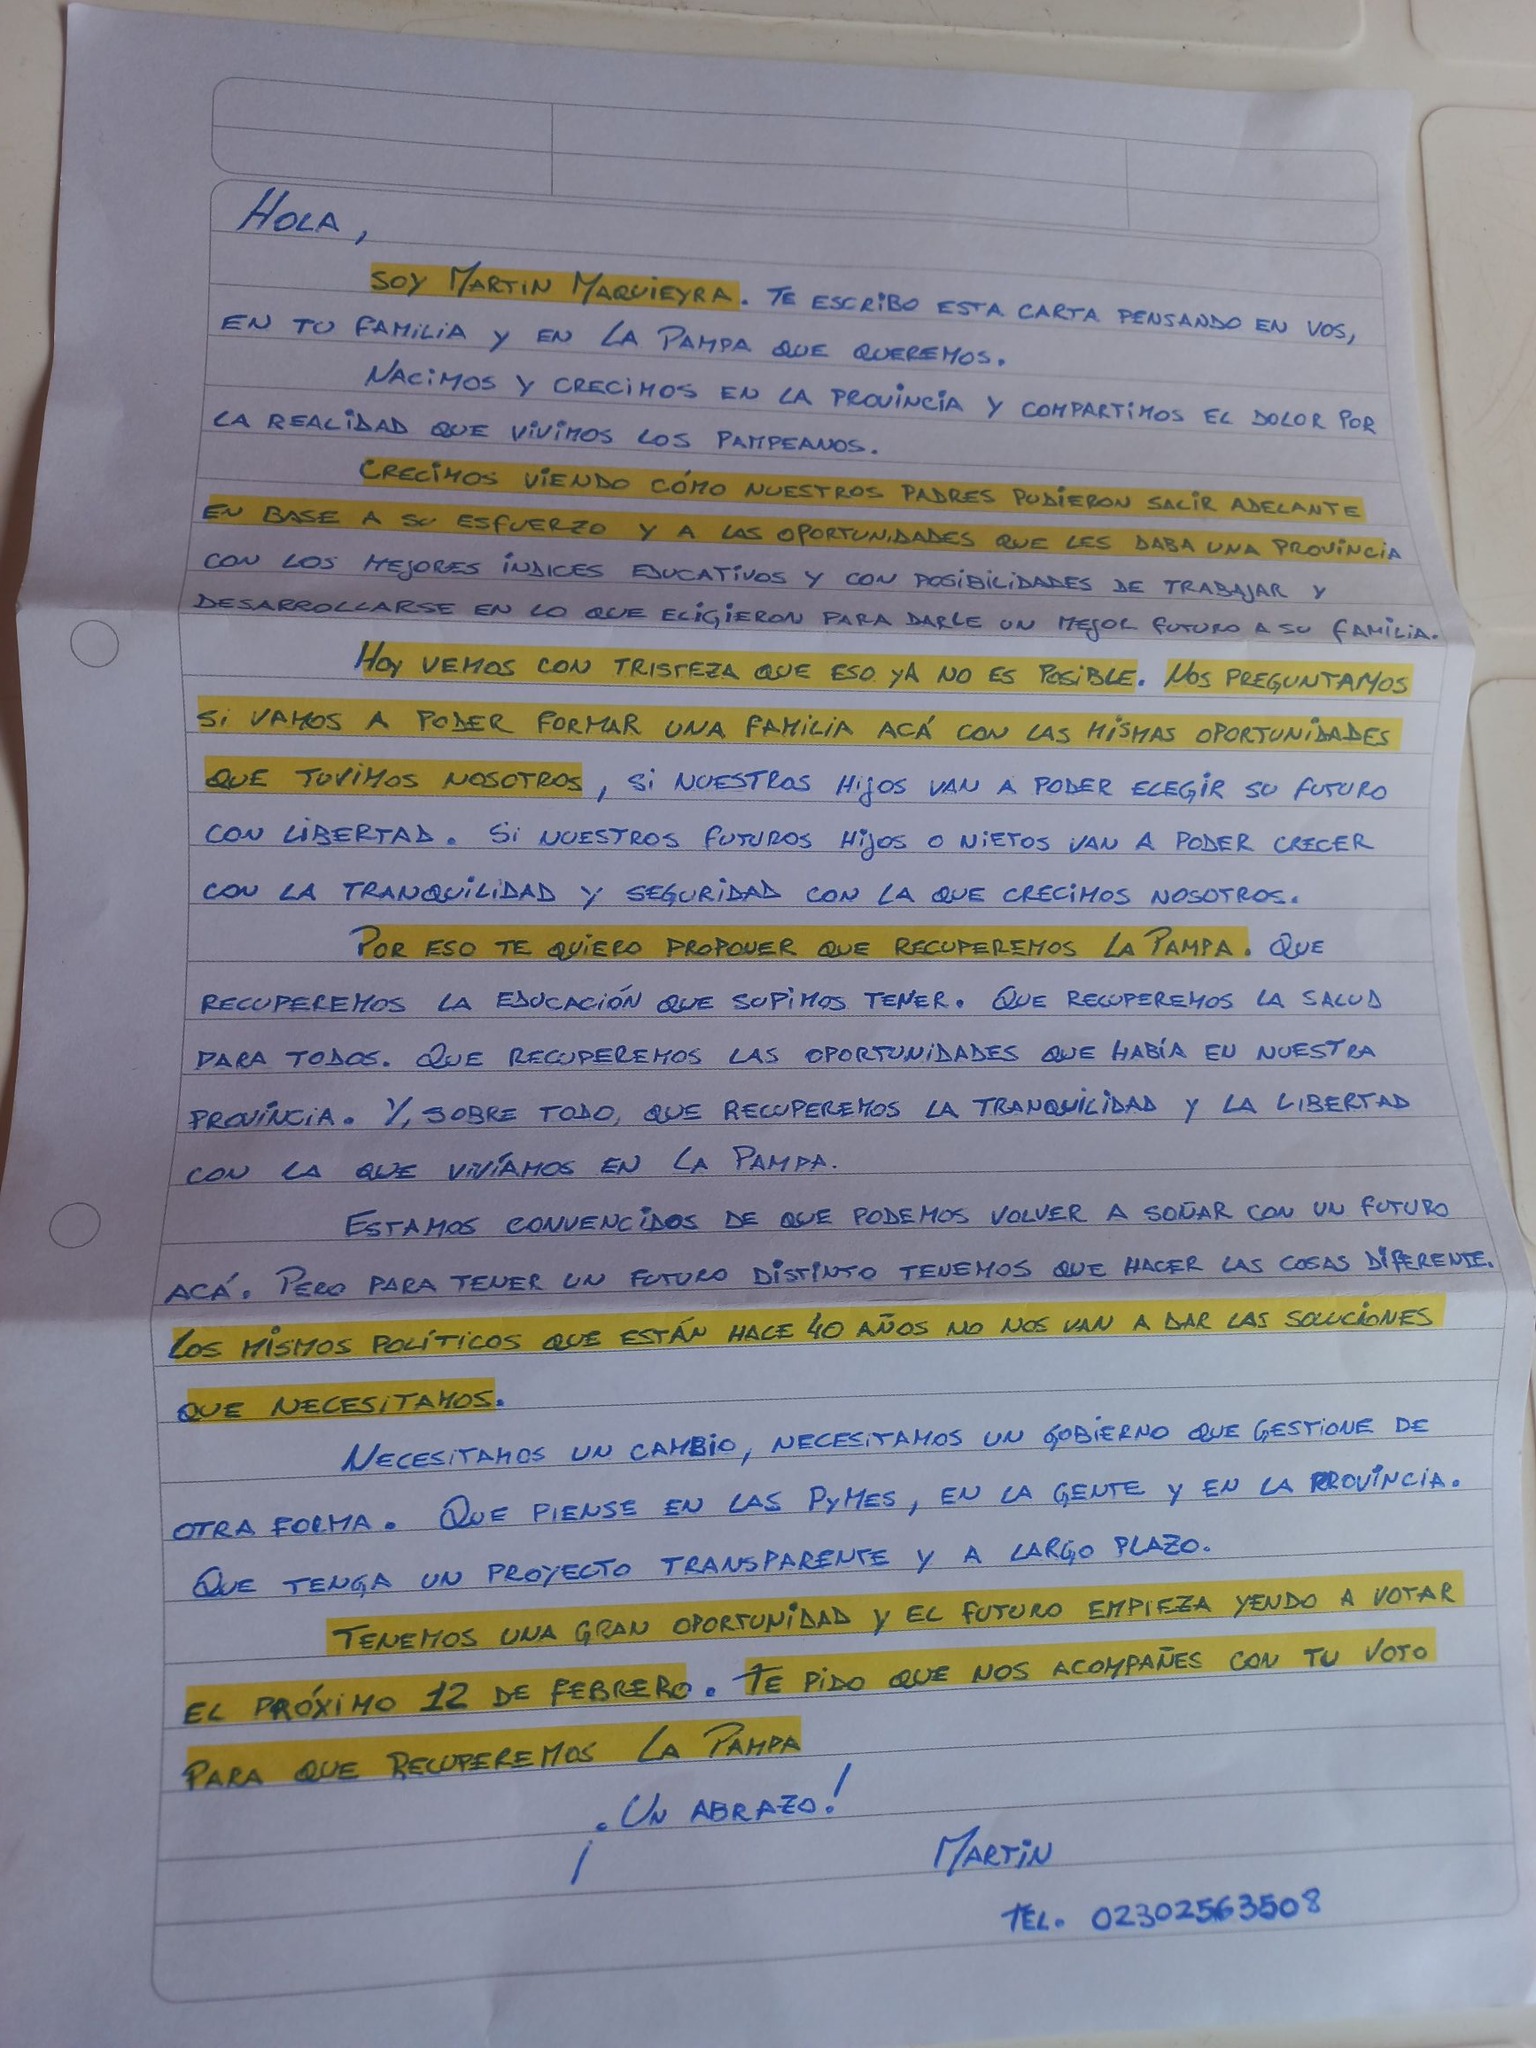 HOLA,
SOY MARTIN MAQUIEYRA. TE ESCRIBO ESTA CARTA PENSANDO EN VOS,
EN TU FAMILIA Y EN LA PAMPA QUE QUEREMOS.
NACIMOS Y CRECIMOS EN LA PROVINCIA Y COMPARTIMOS EL DOLOR POR
LA REALIDAD QUE VIVIMOS LOS PAMPEANOS.
CRECIMOS VIENDO CÓMO NUESTROS PADRES PUDIERON SALIR ADELANTE
EN BASE A SU ESFUERZO Y A LAS OPORTUNIDADES QUE LES DABA UNA PROVINCIA
CON LOS MEJORES ÍNDICES EDUCATIVOS Y CON POSIBILIDADES DE TRABAJAR Y
DESARROLLARSE EN LO QUE ELIGIERON PARA DARLE UN MEJOR FUTURO A SU FAMILIA.
HOY VEMOS CON TRISTEZA QUE ESO YA NO ES POSIBLE. NOS PREGUNTAMOS
SI VAMOS A PODER FORMAR UNA FAMILIA ACÁ CON LAS MISMAS OPORTUNIDADES
QUE TUVIMOS NOSOTROS, SI NUESTROS HIJOS VAN A PODER ELEGIR SU FUTURO
CON LIBERTAD. SI NUESTROS FUTUROS HIJOS O NIETOS VAN A PODER CRECER
CON LA TRANQUILIDAD Y SEGURIDAD CON LA QUE CRECIMOS NOSOTROS.
POR ESO TE QUIERO PROPONER QUE RECUPEREMOS LA PAMPA. QUE
RECUPEREMOS LA EDUCACIÓN QUE SUPIMOS TENER. QUE RECUPEREMOS LA SALUD
PARA TODOS. QUE RECUPEREMOS LAS OPORTUNIDADES QUE HABÍA EN NUESTRA
PROVINCIA. Y, SOBRE TODO, QUE RECUPEREMOS LA TRANQUILIDAD Y LA LIBERTAD
CON LA QUE VIVÍAMOS EN LA PAMPA.
ESTAMOS CONVENCIDOS DE QUE PODEMOS VOLVER A SOÑAR CON UN FUTURO
ACÁ. PERO PARA TENER UN FUTURO DISTINTO TENEMOS QUE HACER LAS COSAS DIFERENTE.
LOS MISMOS POLÍTICOS QUE ESTÁN HACE 40 AÑOS NO NOS VAN A DAR LAS SOLUCIONES
QUE NECESITAMOS.
NECESITAMOS UN CAMBIO, NECESITAMOS UN GOBIERNO QUE GESTIONE DE
OTRA FORMA. QUE PIENSE EN LAS PYMES, EN LA GENTE Y EN LA PROVINCIA.
QUE TENGA UN PROYECTO TRANSPARENTE Y A LARGO PLAZO.
TENEMOS UNA GRAN OPORTUNIDAD Y EL FUTURO EMPIEZA YENDO A VOTAR
EL PRÓXIMO 12 DE FEBRERO. TE PIDO QUE NOS ACOMPAÑES CON TU VOTO
PARA QUE RECUPEREMOS LA PAMPA
¡UN ABRAZO!
MARTIN
TEL. 02302563508